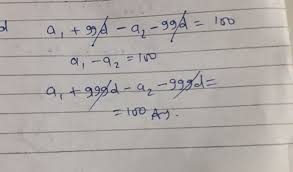 d
a₁ + 99d - a₂ - 99d = 100
a₁ - a₂ = 100
a₁ + 999d - a₂ - 999d =
= 100 Ay.